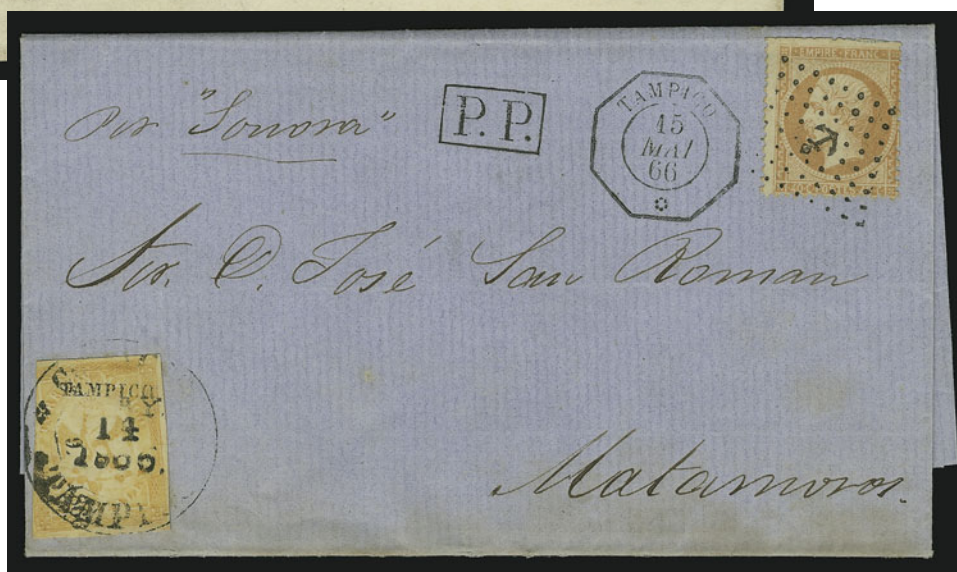 per "Sonora"
P. P.
TAMPICO
15
MAI
66
EMPIRE FRANC
40 CENTS 40
Sor. D. José San Roman
TAMPICO
14
Matamoros.